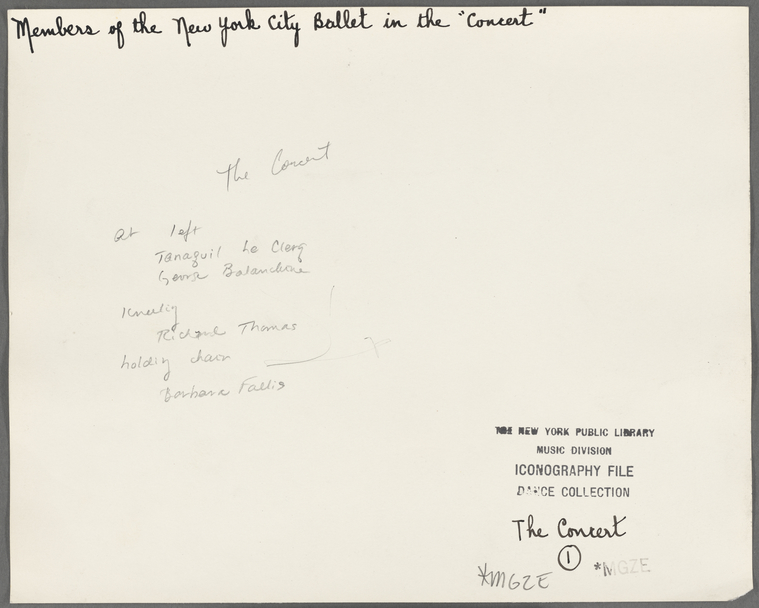 Members of the New York City Ballet in the "Concert"
The Concert
at left
Tanaquil Le Clerq
George Balanchine
Kneeling
Richard Thomas
holding chair
Barbara Fallis
THE NEW YORK PUBLIC LIBRARY
MUSIC DIVISION
ICONOGRAPHY FILE
DANCE COLLECTION
The Concert
1
*MGZE
*MGZE